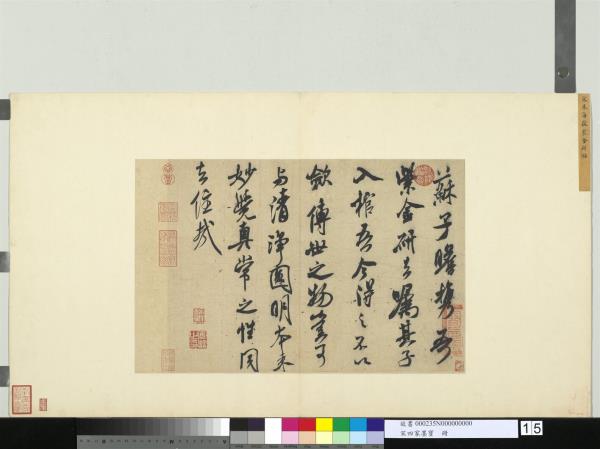 蘇子瞻携吾
紫金研去嘱其子
入棺吾今得之不以
斂傳世之物豈可
与清淨圓明本来
妙覺真常之性同
去住哉
故書 000235N000000000
宋四家墨寶 冊
15